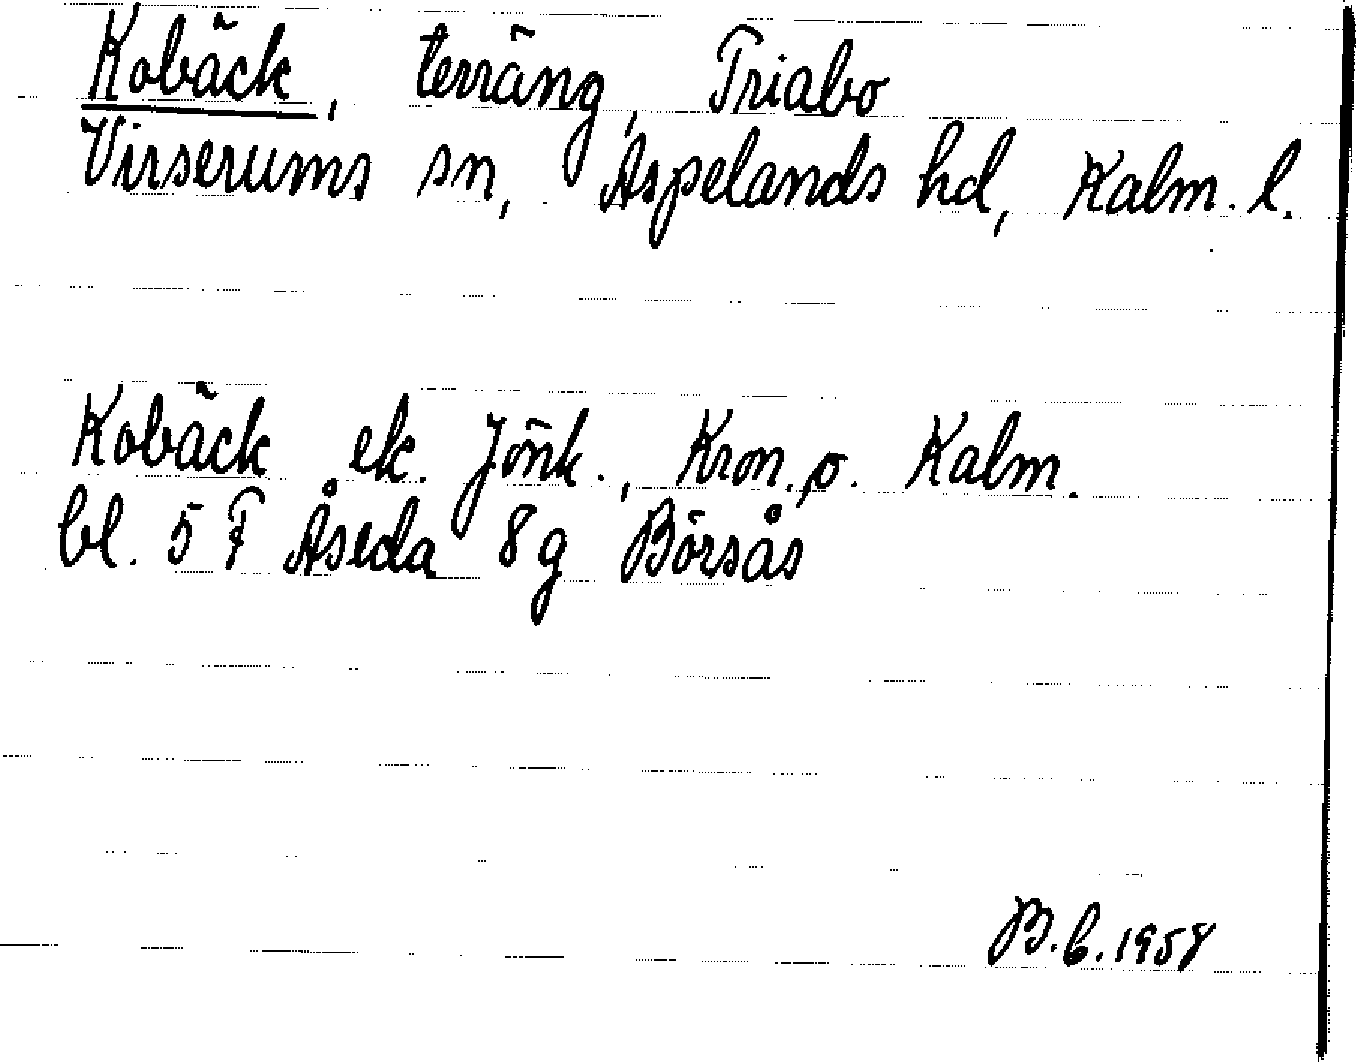 Kobäck, terräng, Triabo
Virserums sn, Aspelands hd, Kalm. l.
Kobäck ek. Jönk., Kron. o. Kalm.
bl. 5 F Åseda 8g Börsås
B.b. 1958